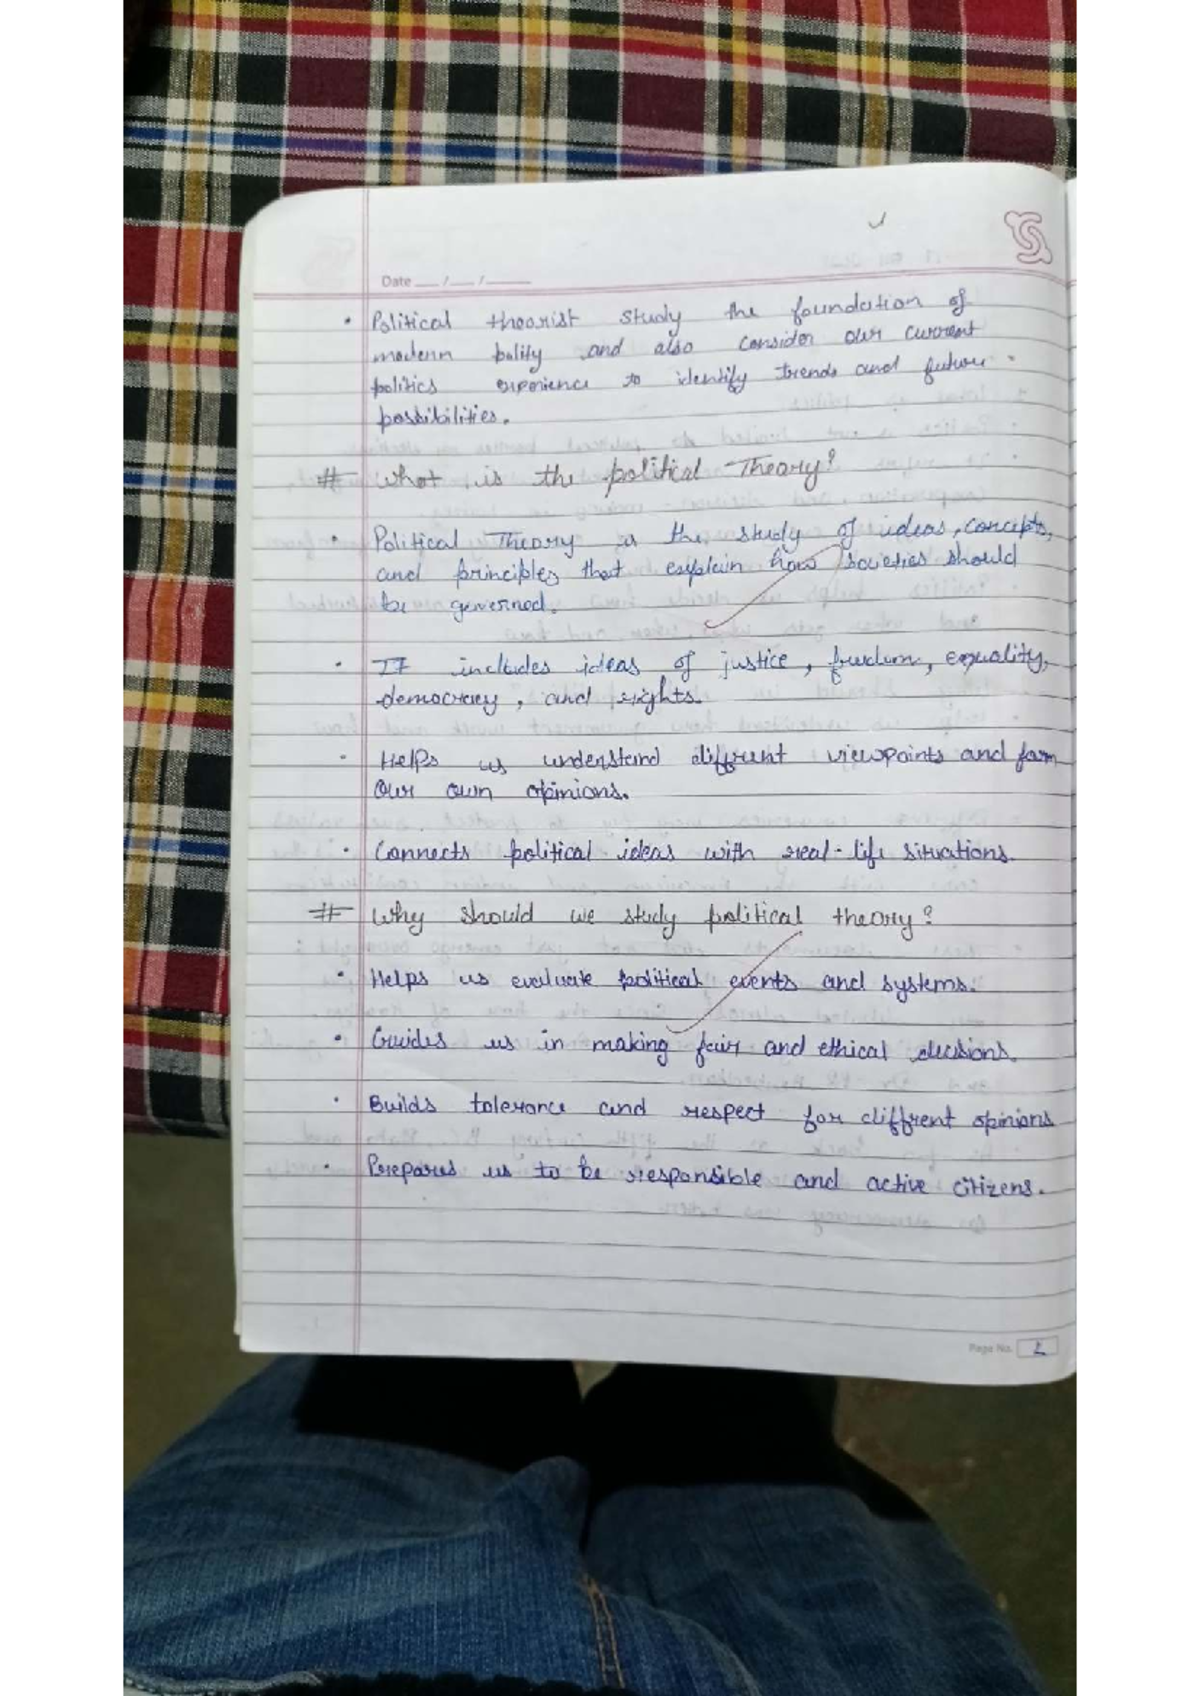 Date __/__/____
• Political theorist study the foundation of
modern polity and also consider our current
politics experience to identify trends and future
possibilities.
# What is the political Theory?
• Political Theory is the study of ideas, concepts,
and principles that explain how societies should
be governed.
• It includes ideas of justice, freedom, equality,
democracy, and rights.
• Helps us understand diffrent viewpoints and form
our own opinions.
• Connects political ideas with real-life situations.
# Why should we study political theory?
• Helps us evaluate political events and systems.
• Guides us in making fair and ethical decisions.
• Builds tolerance and respect for diffrent opinions
• Prepares us to be responsible and active citizens.
Page No. 2